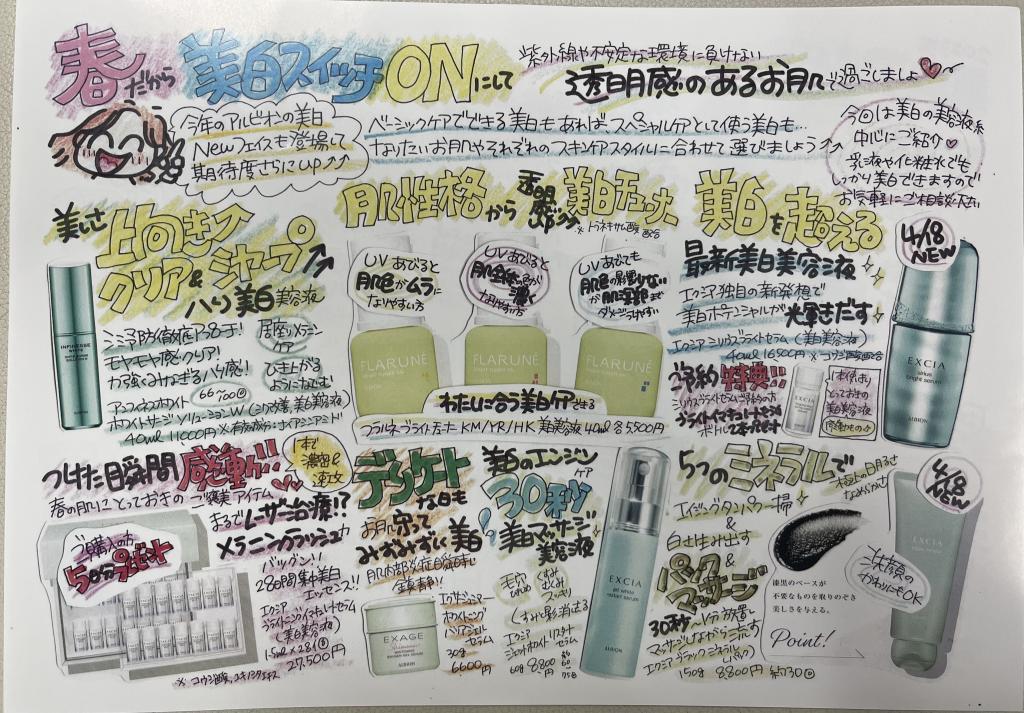 春だから 美白スイッチONにして
紫外線や不安定な環境に負けない
透明感のあるお肌で過ごしましょ
今年のアルビオンの美白
Newフェイスも登場して
期待度さらにUP↑↑
ベーシックケアでできる美白もあれば、スペシャルケアとして使う美白も…
なりたいお肌やそれぞれのスキンケアスタイルに合わせて選びましょう↑↑
今回は美白の美容液を
中心にご紹介
乳液や化粧水でも
しっかり美白できますので
お気軽にご相談下さい
美しさ
上向き↑
クリア&シャープ
ハリ美白美容液
INFINESSE
WHITE
ALBION
シミ予防徹底アプローチ!
モヤモヤ感クリア!
力強くみなぎるハリ感!
ひき上がる
ように
アンフィネスホワイト
ホワイトサージ ソリューション W
40ml 11000円 ※有効成分:ナイアシンアミド
肌性格から透明感UP 美白チューナー
※トラネキサム酸配合
UVあびると
肌色がムラに
なりやすい方
UVあびると
肌全体の色が
濃く
なりやすい方
UVあびても
肌色の影響少ない
が肌深部まで
ダメージうけやすい
FLARUNÉ
FLARUNÉ
FLARUNÉ
わたしに合う美白ケアできる
フラルネ ブライトチューナー KM/YR/HK 美白美容液 40ml 各5,500円
美白を超える
4/18
NEW
最新美白美容液
エクシア独自の新発想で
美白ポテンシャルが輝きだす
エクシア シリウスブライトセラム(美白美容液)
40ml 16500円 ※コウジ酸配合
ご予約特典!!
EXCIA
sirius
bright serum
ALBION
つけた瞬間 感動!!
1本で
濃密&
春の肌にとっておきのご褒美アイテム
まるでレーザー治療!?
メラニングラッシュ力
ご購入の方
5日分プレゼント
バツグン!
28日間集中美白
エッセンス!!
エクシア
ブライトニング イマキュレートセラム
(美白美容液)
1.5ml×28個
27,500円
※コウジ酸、ユキノシタエキス
デリケート
な日も
お肌守って
みずみずしく美白
EXAGE
ALBION
エクサージュ
ホワイトニング
バリアジェル
セラム
30g
6600円
美白のエンジン
ケア
30秒
美白マッサージ
美容液
毛穴
くすみ
むくみ
スッキリ
くすみと影消せる
エクシア
ジェルホワイト リスタート
セラム
60g 8,800円
EXCIA
gel white
restart serum
ALBION
5つのミネラルで
エイジングタンパク一掃
&
白さ生み出す
パック
&
マッサージ
30秒〜1分放置し
マッサージしながら流す
エクシア ブラックミネラル(パック)
150g 8,800円 約30回
4/18
NEW
漆黒のベースが
不要なものを取りのぞき
美しさを与える。
Point!
洗顔の
かわりにもOK
EXCIA